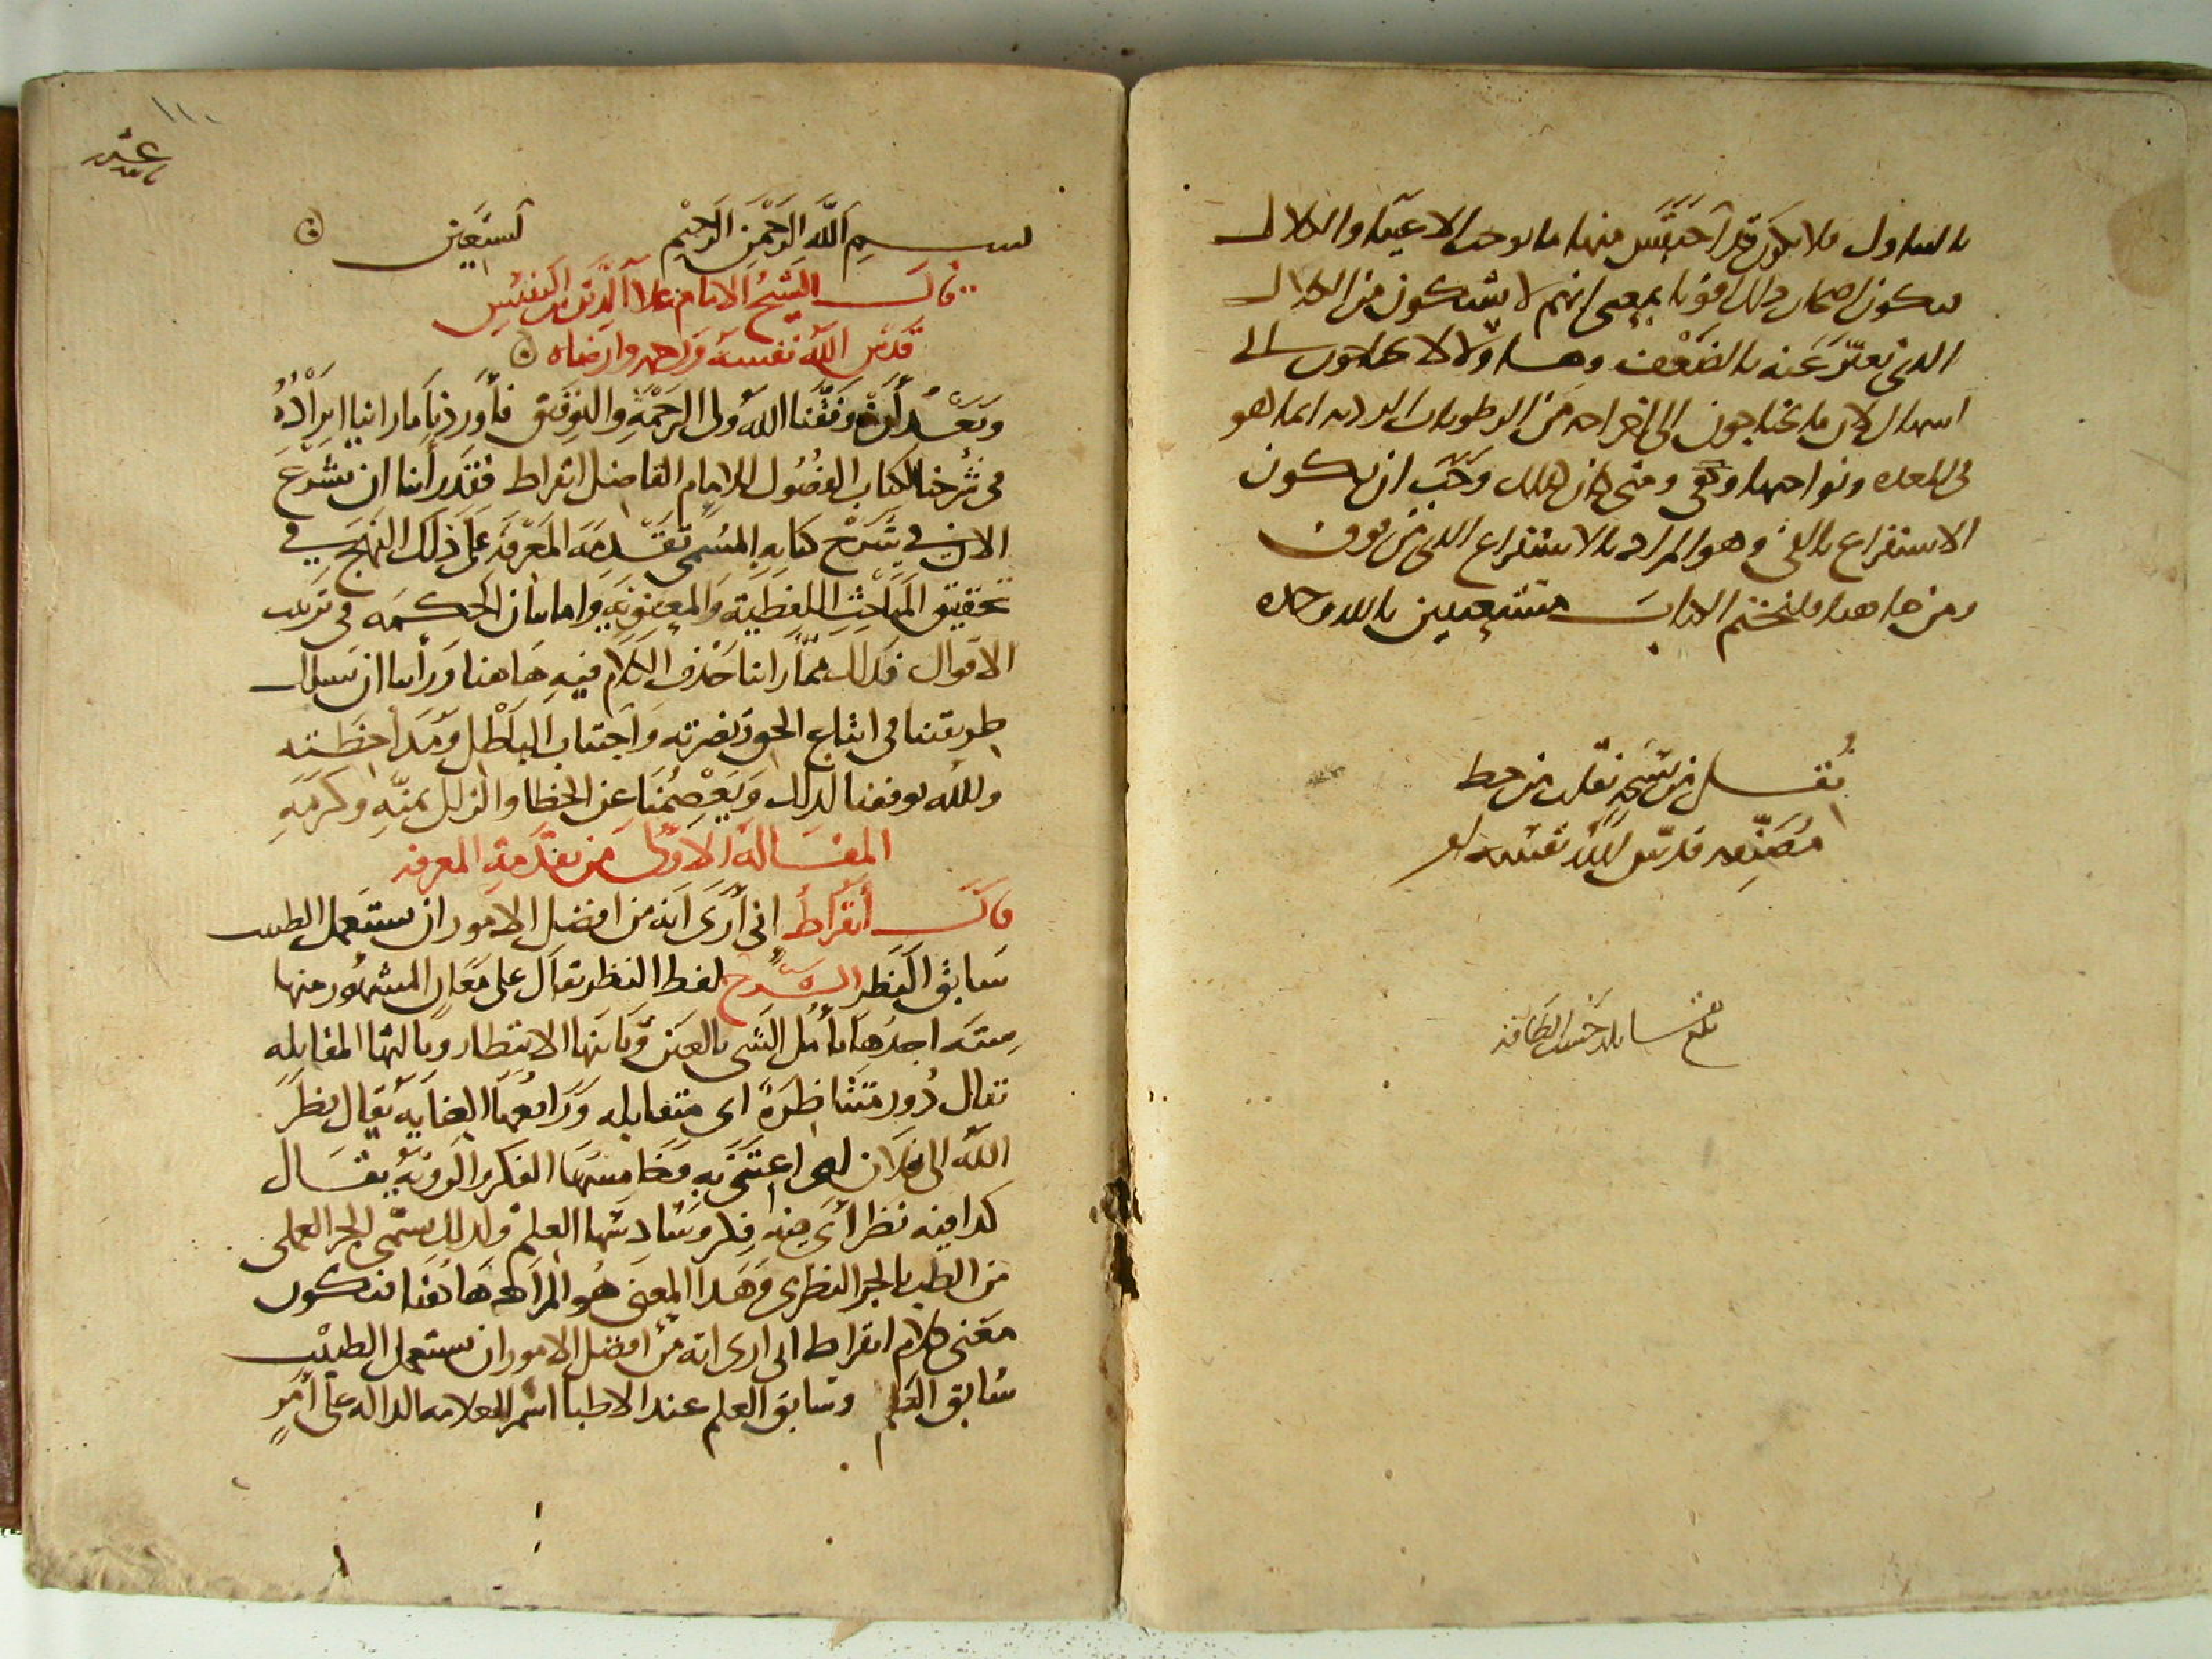 بالتناول فلا يكون قد احتبس منها ما يوجب الاعياء والكلال
فيكون اصحاب ذلك اقويا بمعنى انهم لا يشتكون من الكلال
الذي تعبر عنه بالضعف وهاولا لا يحتاجون الى
اسهال لان ما يحتاجون الى اخراجه من الرطوبات الردية انما هو
في المعدة ونواحيها ومتى كان كذلك وجب ان يكون
الاستفراغ بالقي وهو المراد بالاستفراغ الذي من فوق
ومن هاهنا فلنختم الكتاب مستعينين بالله وحده
نقل من نسخة نقلت من خط
مصنفه قدس الله نفسه
بلغ حسب الطاقة
بسم الله الرحمن الرحيم نستعين
قال الشيخ الامام علا الدين بن النفيس
قدس الله نفسه ورحمه وارضاه
وبعد وفقنا الله ولى الرحمة والتوفيق فأوردنا ما راينا ايراده
في شرحنا لكتاب الفصول للامام الفاضل ابقراط فقد راينا ان نشرع
الان في شرح كتابه المسمى تقدمة المعرفة على ذلك النهج في
تحقيق المباحث اللفظية والمعنوية واما بيان الحكمة في ترتيب
الاقوال فذلك مما راينا حذف الكلام فيه هاهنا وراينا ان نسلك
طريقتنا في اتباع الحق ونصرته واجتناب الباطل
والله يوفقنا لذلك ويعصمنا عن الخطا والزلل بمنه وكرمه
المقالة الاولى من تقدمة المعرفة
قال أبقراط اني أرى انه من افضل الامور ان يستعمل الطبيب
سابق النظر الشرح لفظ النظر يقال على معان المشهور منها
ستة احدها تأمل الشي بالعين وثانيها الانتظار وثالثها المقابلة
يقال دور متناظرة اى متقابلة ورابعها العناية يقال نظر
الله الى فلان اى اعتنى به وخامسها الفكر والروية يقال
كذا فيه نظر أى فيه فكر وسادسها العلم ولذلك يسمى الجز العلمي
من الطب بالجز النظري وهذا المعنى هو المراد هاهنا فيكون
معنى كلام ابقراط انى ارى انه من افضل الامور ان يستعمل الطبيب
سابق العلم وسابق العلم عند الاطبا اسم للعلامة الدالة على أمر